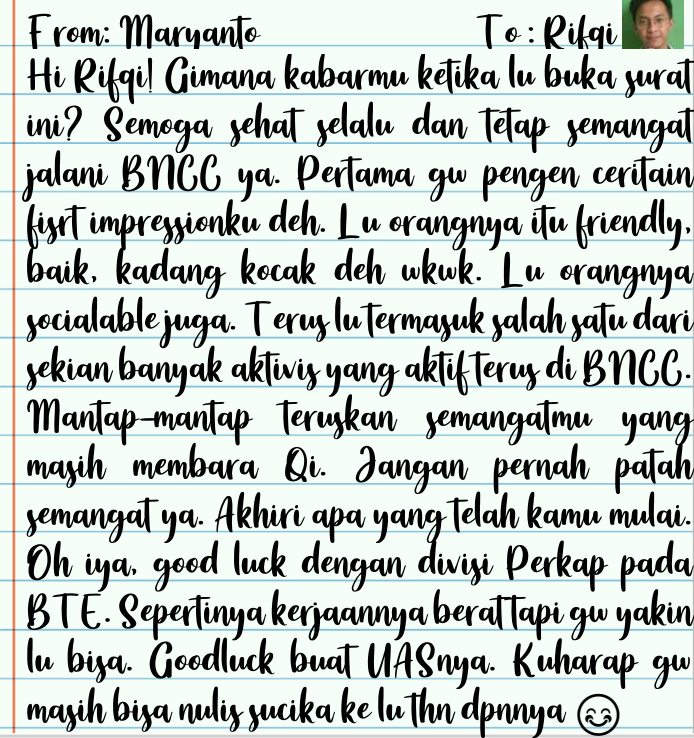 From: Maryanto To : Rifqi
Hi Rifqi! Gimana kabarmu ketika lu buka surat
ini? Semoga sehat selalu dan tetap semangat
jalani BNCC ya. Pertama gw pengen ceritain
fisrt impressionku deh. Lu orangnya itu friendly,
baik, kadang kocak deh wkwk. Lu orangnya
socialable juga. Terus lu termasuk salah satu dari
sekian banyak aktivis yang aktif terus di BNCC.
Mantap-mantap teruskan semangatmu yang
masih membara Qi. Jangan pernah patah
semangat ya. Akhiri apa yang telah kamu mulai.
Oh iya, good luck dengan divisi Perkap pada
BTE. Sepertinya kerjaannya berat tapi gw yakin
lu bisa. Goodluck buat UASnya. Kuharap gw
masih bisa nulis sucika ke lu thn dpnnya 😊